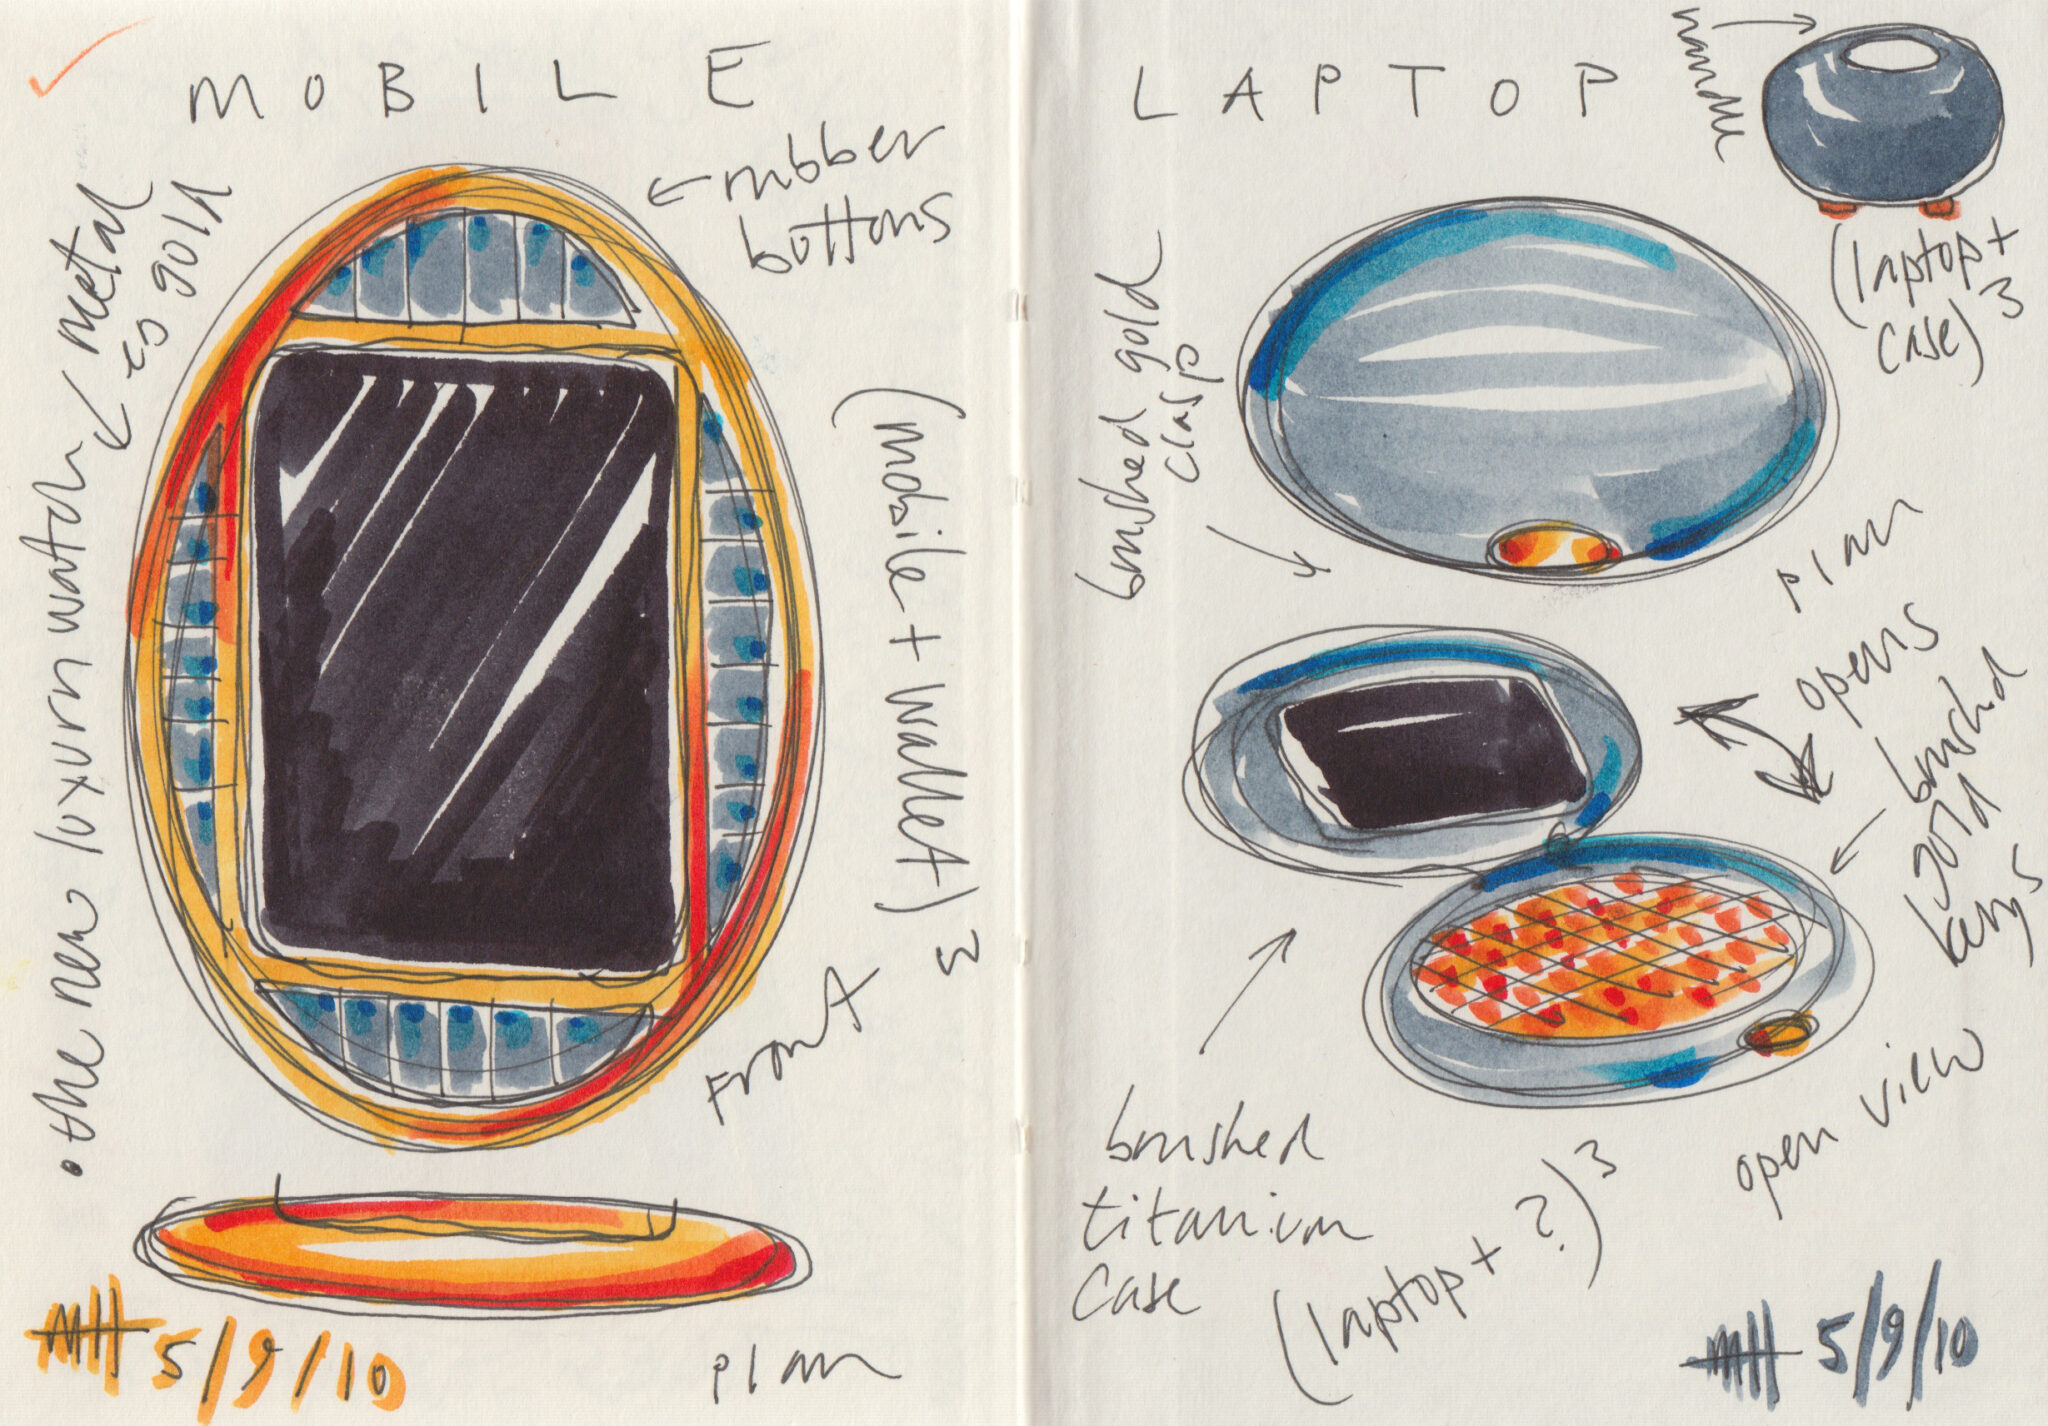 MOBILE
← rubber
buttons
← metal
eg gold
• the new luxury watch
(mobile + wallet)³
Front
plan
MH 5/9/10
LAPTOP
handle
(laptop +
case)³
brushed gold
clasp
plan
opens
brushed
gold
keys
open view
brushed
titanium
case
(laptop + ?)³
MH 5/9/10